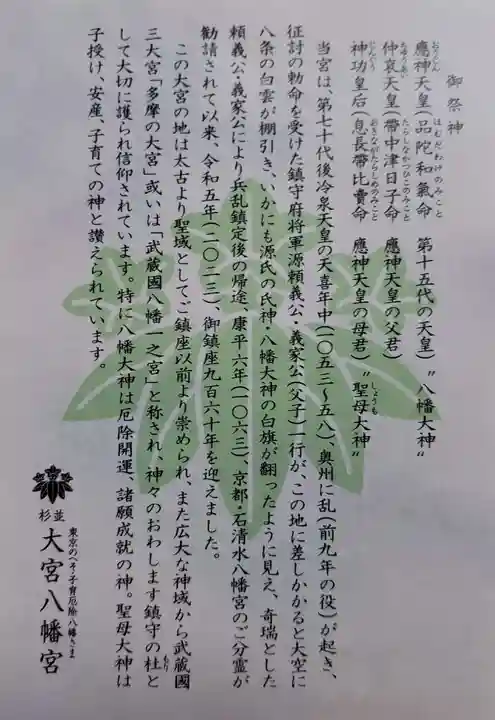 御祭神
應神天皇(品陀和氣命 第十五代の天皇) "八幡大神"
おうじん ほむだわけのみこと
仲哀天皇(帶中津日子命 應神天皇の父君)
ちゅうあい たらしなかつひこのみこと
神功皇后(息長帶比賣命 應神天皇の母君) "聖母大神"
じんぐう おきながたらしめのみこと しょうも
当宮は、第七十代後冷泉天皇の天喜年中(一〇五三〜五八)、奥州に乱(前九年の役)が起き、
征討の勅命を受けた鎮守府将軍源頼義公・義家公(父子)一行が、この地に差しかかると大空に
八条の白雲が棚引き、いかにも源氏の氏神・八幡大神の白旗が翻ったように見え、奇瑞とした
頼義公・義家公により兵乱鎮定後の帰途、康平六年(一〇六三)、京都・石清水八幡宮のご分霊が
勧請されて以来、令和五年(二〇二三)、御鎮座九百六十年を迎えました。
この大宮の地は太古より聖域として、ご鎮座以前より崇められ、また広大な神域から武蔵國
三大宮「多摩の大宮」或いは「武蔵國八幡一之宮」と称され、神々のおわします鎮守の杜と
もり
して大切に護られ信仰されています。特に八幡大神は厄除開運、諸願成就の神。聖母大神は
子授け、安産、子育ての神と讃えられています。
東京のへそ・子育厄除八幡さま
杉並
大宮八幡宮